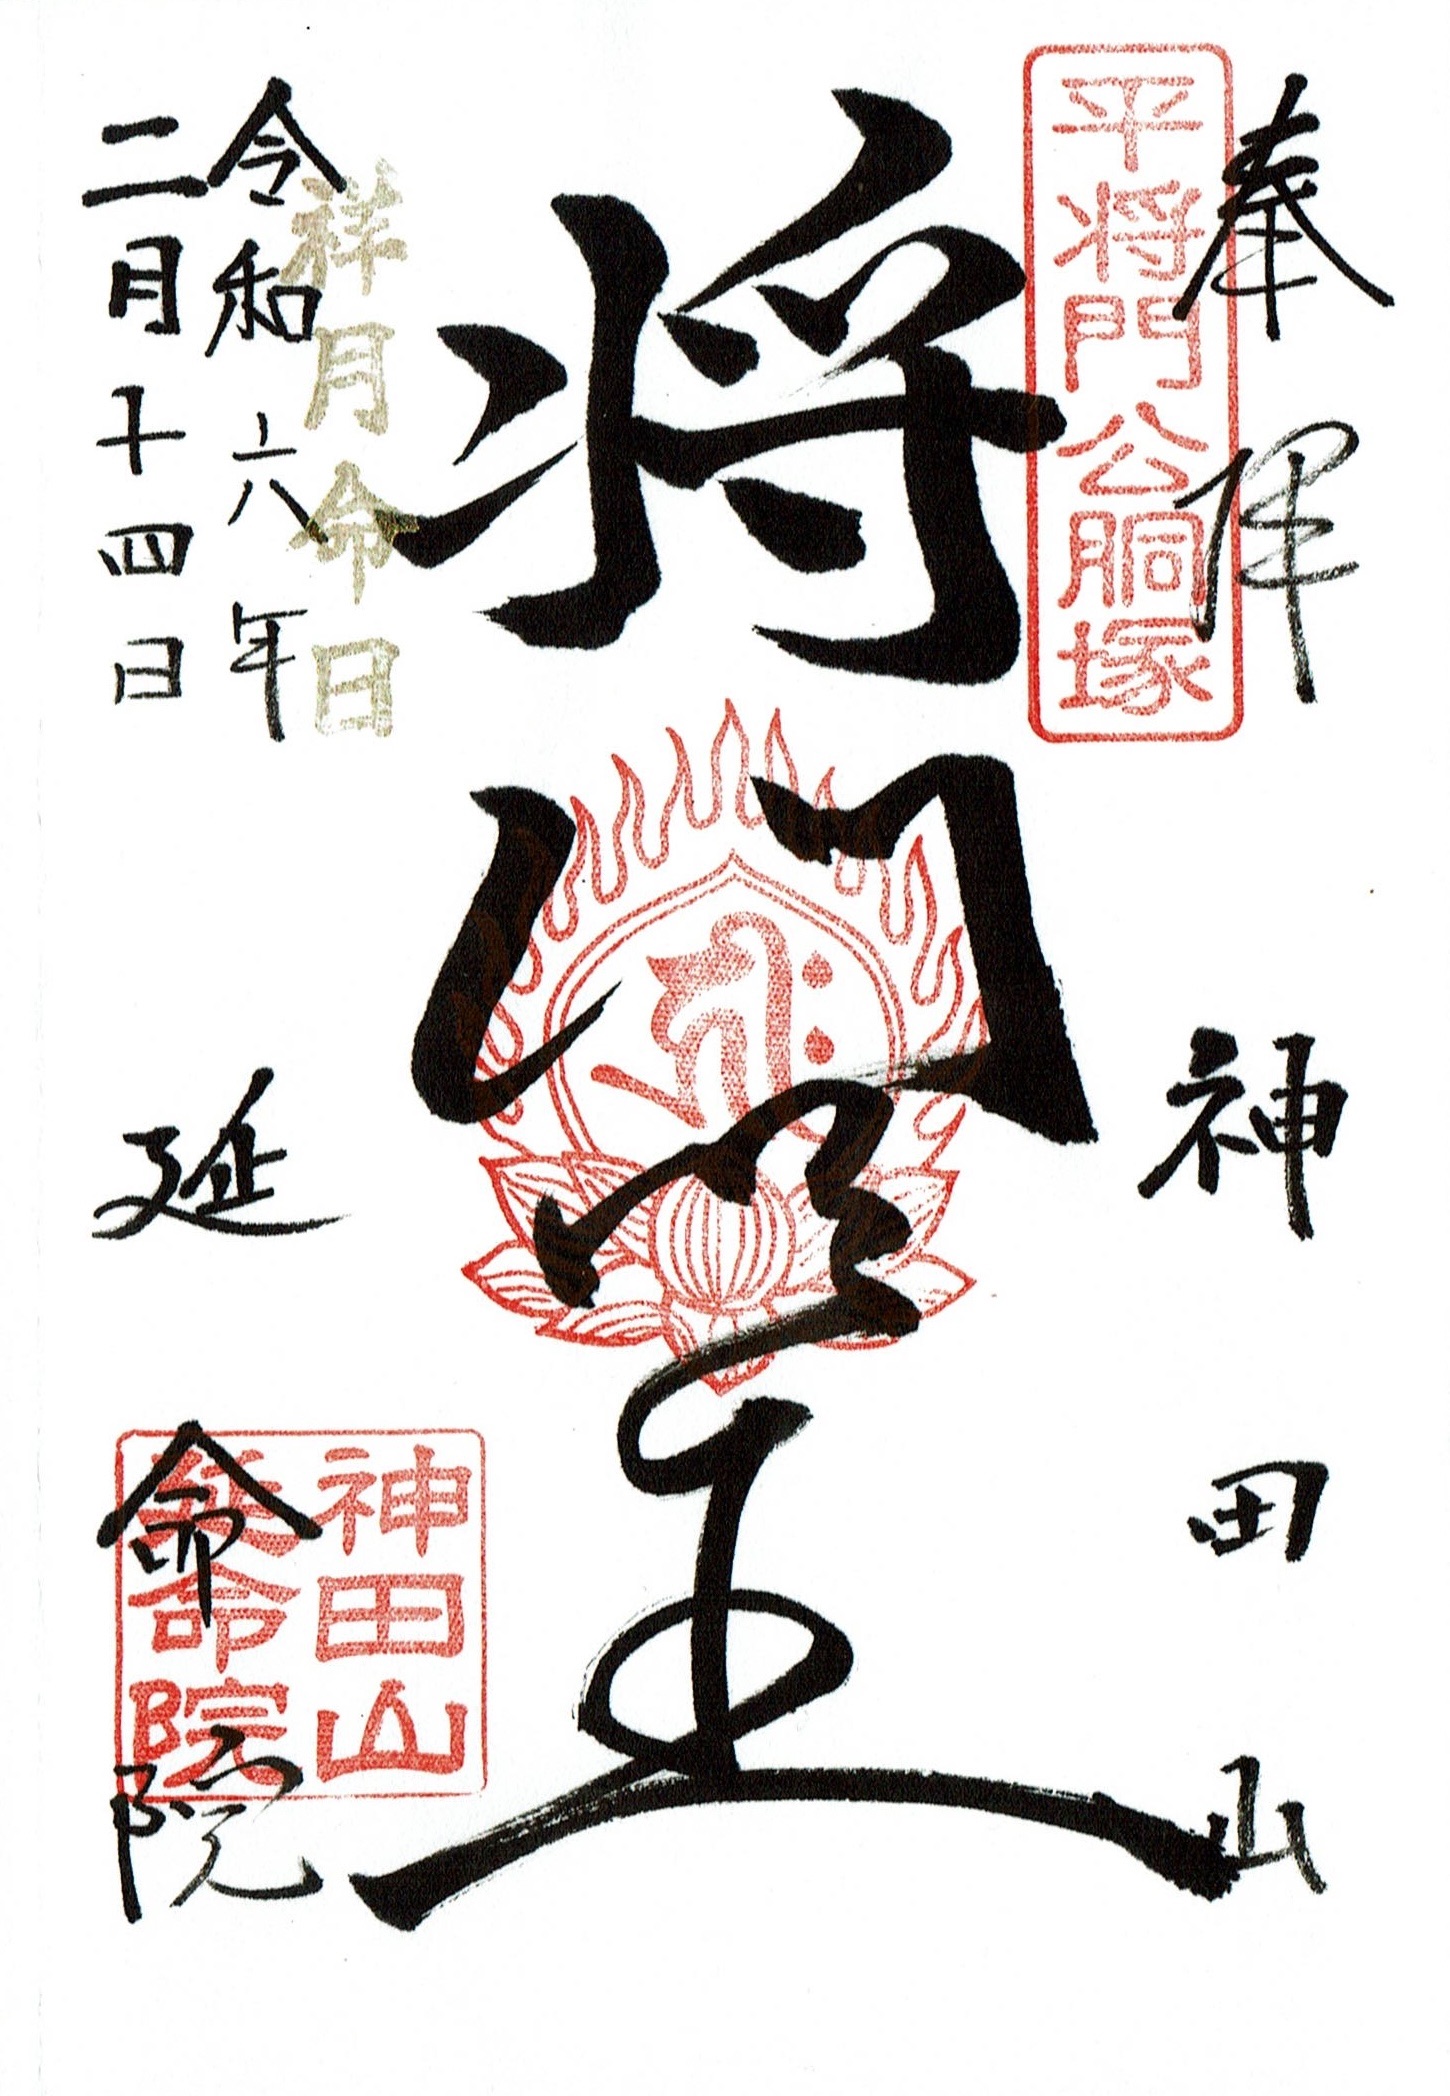 奉拝
神田山
平将門公胴塚
将門堂
祥月命日
令和六年
二月十四日
延命院
神田山
延命院